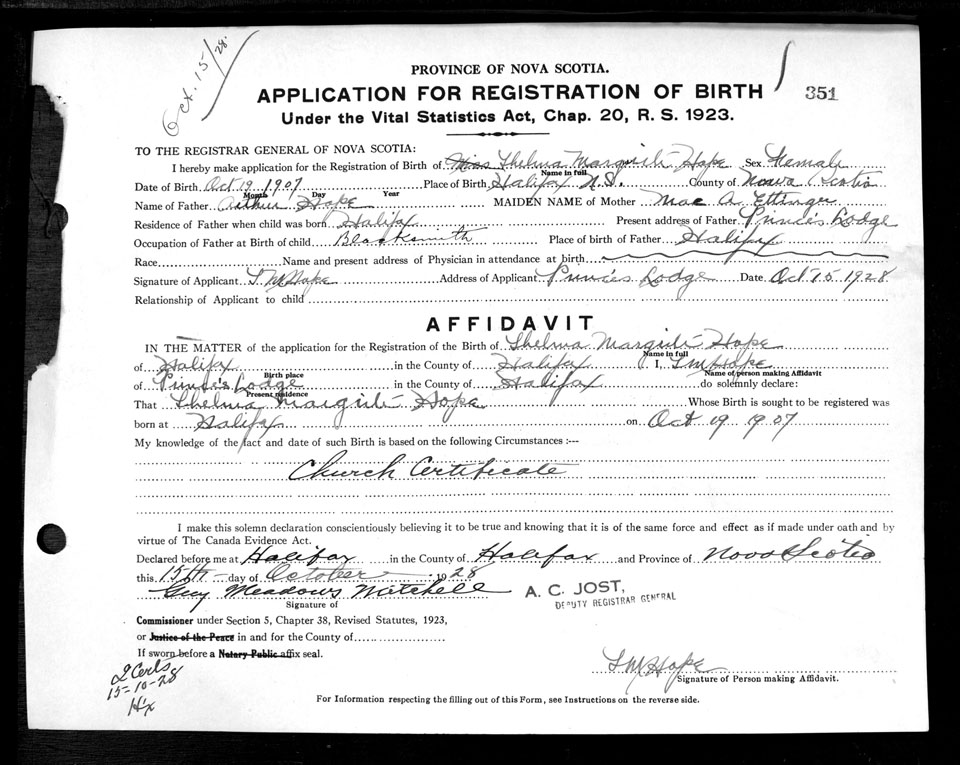 Oct. 15/28.
PROVINCE OF NOVA SCOTIA.
APPLICATION FOR REGISTRATION OF BIRTH
351
Under the Vital Statistics Act, Chap. 20, R. S. 1923.
TO THE REGISTRAR GENERAL OF NOVA SCOTIA:
I hereby make application for the Registration of Birth of Miss Thelma Hope Sex Female
Name in full
Date of Birth Oct 19 1907 Place of Birth Halifax N.S. County of Nova Scotia
Month Day Year
Name of Father Arthur Hope MAIDEN NAME of Mother Mae A. Ettinger
Residence of Father when child was born Halifax Present address of Father Prince's Lodge
Occupation of Father at Birth of child Blacksmith Place of birth of Father Halifax
Race Name and present address of Physician in attendance at birth
Signature of Applicant T M Hope Address of Applicant Prince's Lodge Date Oct 15 1928
Relationship of Applicant to child
AFFIDAVIT
IN THE MATTER of the application for the Registration of the Birth of Thelma Hope
Name in full
of Halifax in the County of Halifax I, T M Hope
Birth place Name of person making Affidavit
of Prince's Lodge in the County of Halifax do solemnly declare:
Present residence
That Thelma Hope Whose Birth is sought to be registered was
born at Halifax on Oct 19 1907
My knowledge of the fact and date of such Birth is based on the following Circumstances :—
Church Certificate
I make this solemn declaration conscientiously believing it to be true and knowing that it is of the same force and effect as if made under oath and by
virtue of The Canada Evidence Act.
Declared before me at Halifax in the County of Halifax and Province of Nova Scotia
this 15th day of October 1928
Guy Meadows Mitchell
A. C. JOST,
DEPUTY REGISTRAR GENERAL
Signature of
Commissioner under Section 5, Chapter 38, Revised Statutes, 1923,
or Justice of the Peace in and for the County of
If sworn before a Notary Public affix seal.
2 Certs
15-10-28
Hx
T M Hope
Signature of Person making Affidavit.
For Information respecting the filling out of this Form, see Instructions on the reverse side.